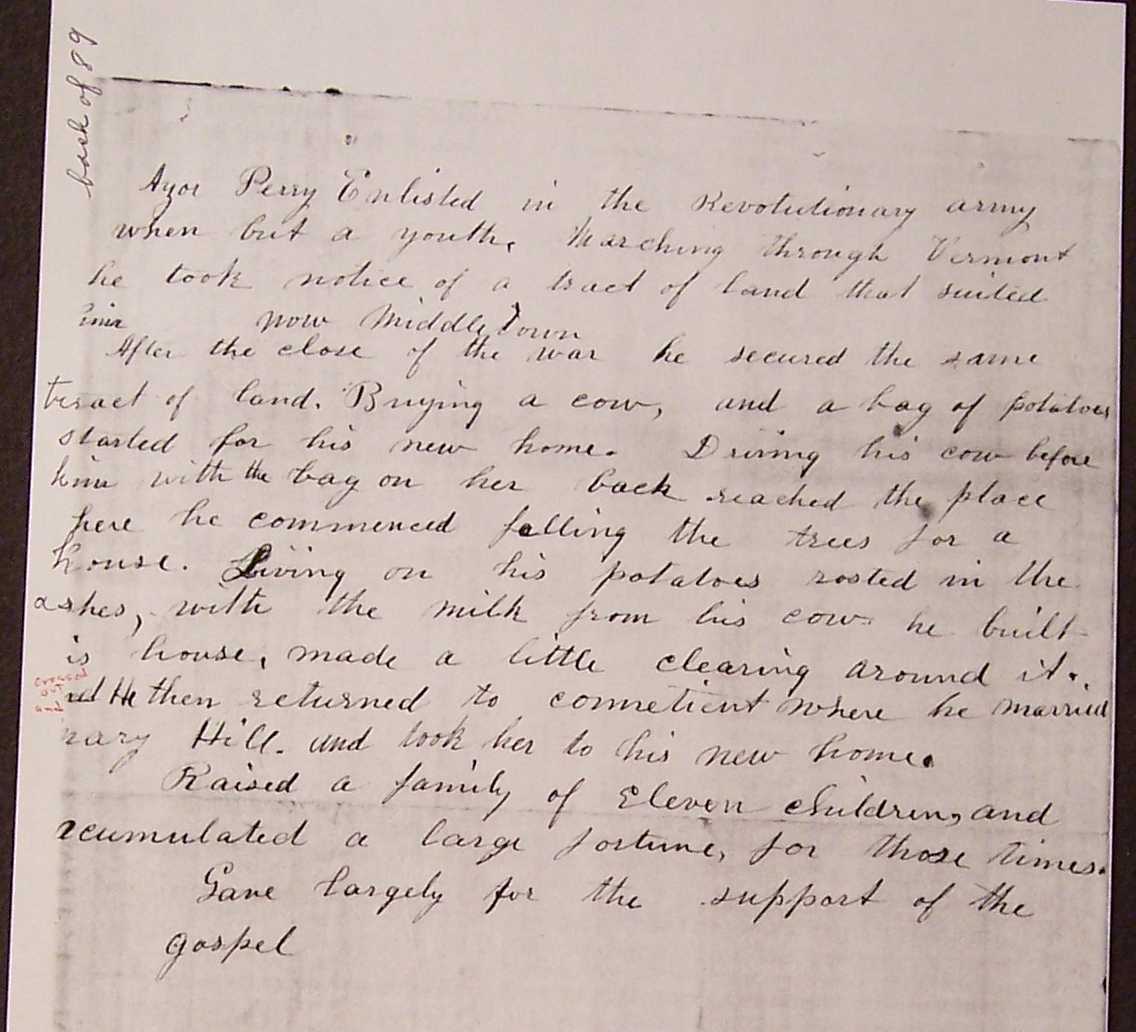 back of 89
Azor Perry Enlisted in the Revolutionary army
when but a youth. Marching through Vermont
he took notice of a tract of land that suited
him now MiddleTown
After the close of the war he secured the same
tract of land. Buying a cow, and a bag of potatoes
started for his new home. Driving his cow before
him with the bag on her back reached the place
here he commenced falling the trees for a
house. Living on his potatoes rosted in the
ashes, with the milk from his cow he built
is house, made a little clearing around it.
crossed
out
and
He then returned to connetient where he married
nary Hill. and took her to his new home.
Raised a family of Eleven children, and
ccumulated a large fortune, for those times.
Gave largely for the support of the
gospel